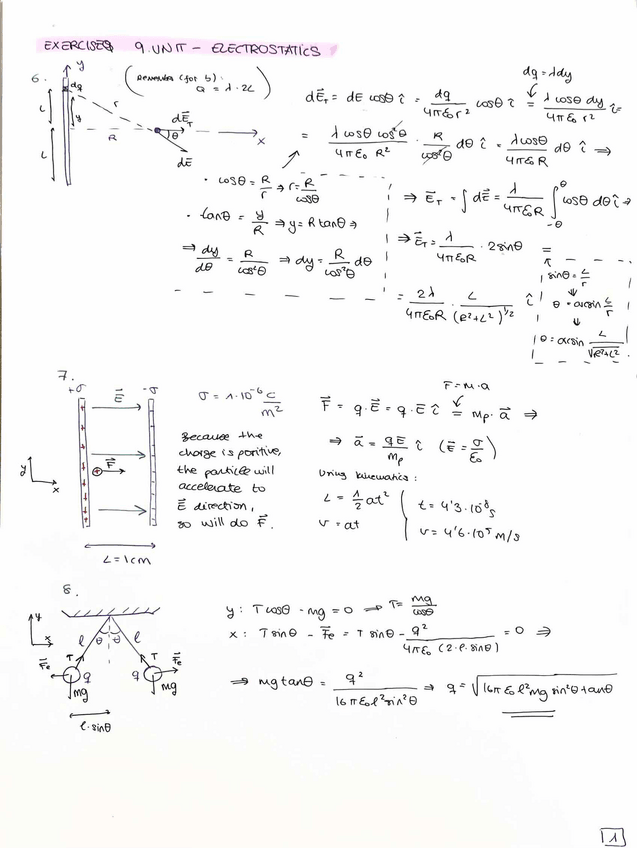 EXERCISES 9. UNIT - ELECTROSTATICS
6.
(Remember (for b): Q = λ·2L)
y
dq
L
y
r
dE⃗_T
θ
R
x
L
dE⃗
dq = λdy
dE⃗_T = dE cosθ î = dq/(4πε₀r²) cosθ î = λcosθ dy/(4πε₀r²) î =
= λcosθ cos²θ/(4πε₀ R²) · R/cos²θ dθ î = λcosθ/(4πε₀R) dθ î ⇒
· cosθ = R/r ⇒ r = R/cosθ
· tanθ = y/R ⇒ y = R tanθ ⇒
⇒ dy/dθ = R/cos²θ ⇒ dy = R/cos²θ dθ
⇒ E⃗_T = ∫ dE⃗ = λ/(4πε₀R) ∫_{-θ}^{θ} cosθ dθ î ⇒
⇒ E⃗_T = λ/(4πε₀R) · 2sinθ =
= 2λ/(4πε₀R) · L/(R²+L²)^{1/2} î
sinθ = L/r
⇓
θ = arcsin L/r
⇓
θ = arcsin L/√(R²+L²)
7.
+σ E⃗ -σ
F⃗
y
x
L = 1cm
σ = 1·10⁻⁶ C/m²
Because the
charge is positive,
the particle will
accelerate to
E⃗ direction,
so will do F⃗.
F = m·a
F⃗ = q·E⃗ = q·E î = m_p·a⃗ ⇒
⇒ a⃗ = qE/m_p î (E⃗ = σ/ε₀)
Using kinematics:
L = 1/2 at²
v = at
t = 4'3·10⁻⁸ s
v = 4'6·10⁵ m/s
8.
y
x
l θ θ l
F⃗e T T F⃗e
q q
mg mg
l·sinθ
y: Tcosθ - mg = 0 ⇒ T = mg/cosθ
x: Tsinθ - F⃗e = Tsinθ - q²/(4πε₀(2·l·sinθ)) = 0 ⇒
⇒ mg tanθ = q²/(16πε₀l²sin²θ) ⇒ q = √(16πε₀l²mg sin²θ tanθ)
1